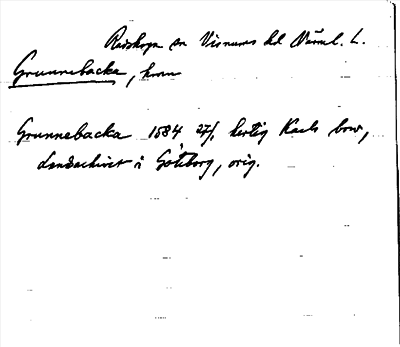 Rudskoga sn Visnums hd Värml. L.
Grunnebacka, hmn
Grunnebacka 1584 27/1, hertig Karls brev,
Landsarkivet i Göteborg, orig.